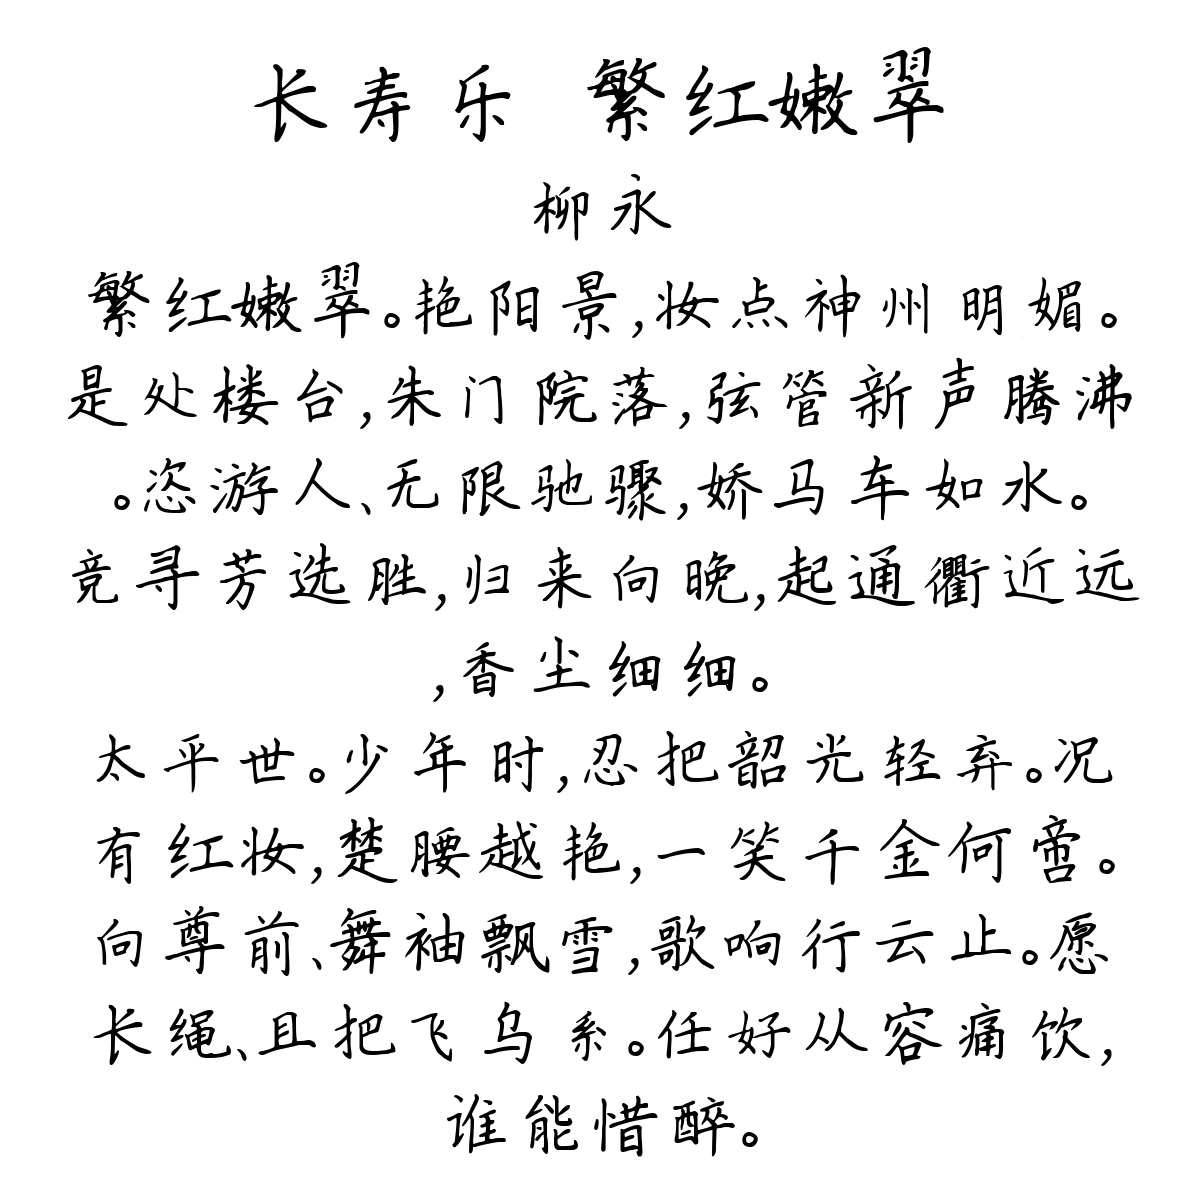 长寿乐 繁红嫩翠
柳永
繁红嫩翠。艳阳景,妆点神州明媚。
是处楼台,朱门院落,弦管新声腾沸
。恣游人、无限驰骤,娇马车如水。
竞寻芳选胜,归来向晚,起通衢近远
,香尘细细。
太平世。少年时,忍把韶光轻弃。况
有红妆,楚腰越艳,一笑千金何啻。
向尊前、舞袖飘雪,歌响行云止。愿
长绳、且把飞乌系。任好从容痛饮,
谁能惜醉。